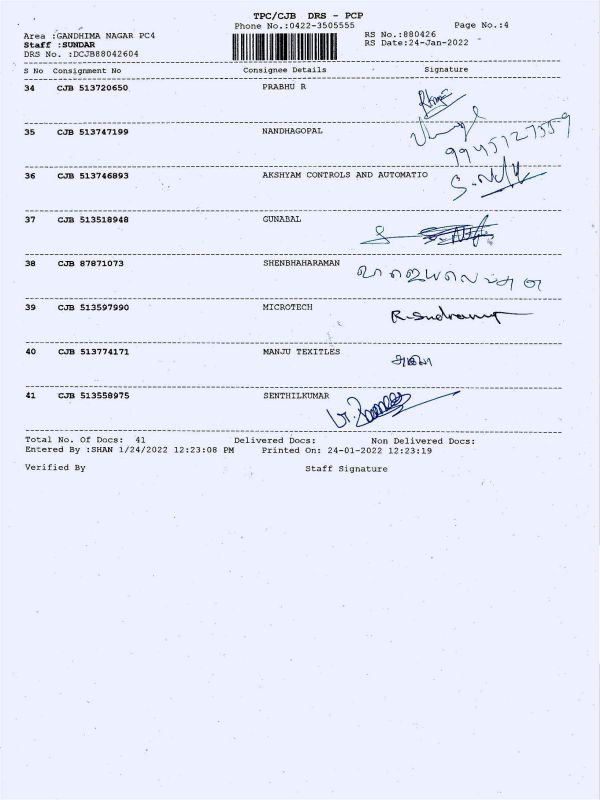 TPC/CJB DRS - PCP
Phone No.:0422-3505555
Page No.:4
Area :GANDHIMA NAGAR PC4
RS No.:880426
Staff :SUNDAR
RS Date:24-Jan-2022
DRS No. :DCJB88042604
S No Consignment No Consignee Details Signature
34 CJB 513720650 PRABHU R
35 CJB 513747199 NANDHAGOPAL
9945127559
36 CJB 513746893 AKSHYAM CONTROLS AND AUTOMATIO
37 CJB 513518948 GUNABAL
38 CJB 87871073 SHENBHAHARAMAN
39 CJB 513597990 MICROTECH
40 CJB 513774171 MANJU TEXITLES
41 CJB 513558975 SENTHILKUMAR
Total No. Of Docs: 41 Delivered Docs: Non Delivered Docs:
Entered By :SHAN 1/24/2022 12:23:08 PM Printed On: 24-01-2022 12:23:19
Verified By Staff Signature